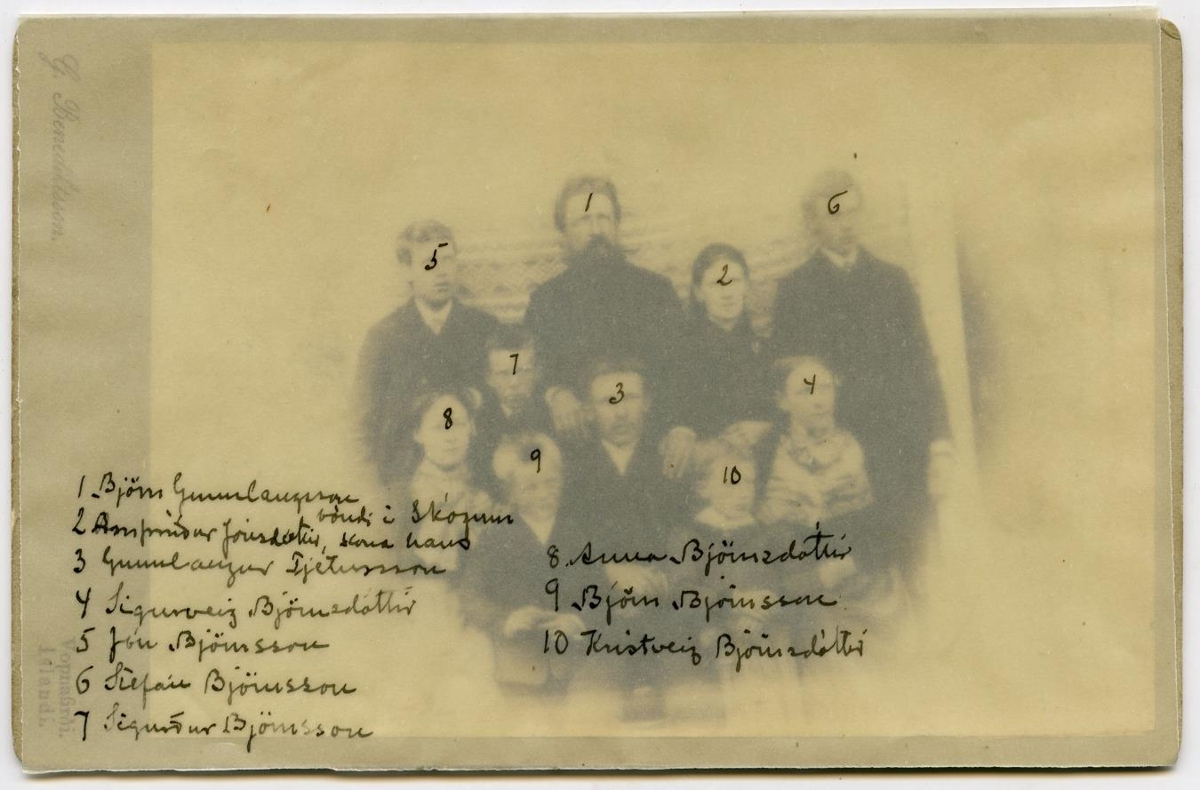 G. Benediktsson.
Vopnafirði.
Island.
5
1
6
2
7
3
4
8
9
10
1 Björn Gunnlaugsson
bóndi í Skógum
2 Arnþrúður Jónsdóttir, kona hans
3 Gunnlaugur Pjetursson
4 Sigurveig Björnsdóttir
5 Jón Björnsson
6 Stefán Björnsson
7 Sigurður Björnsson
8. Anna Björnsdóttir
9 Björn Björnsson
10 Kristveig Björnsdóttir